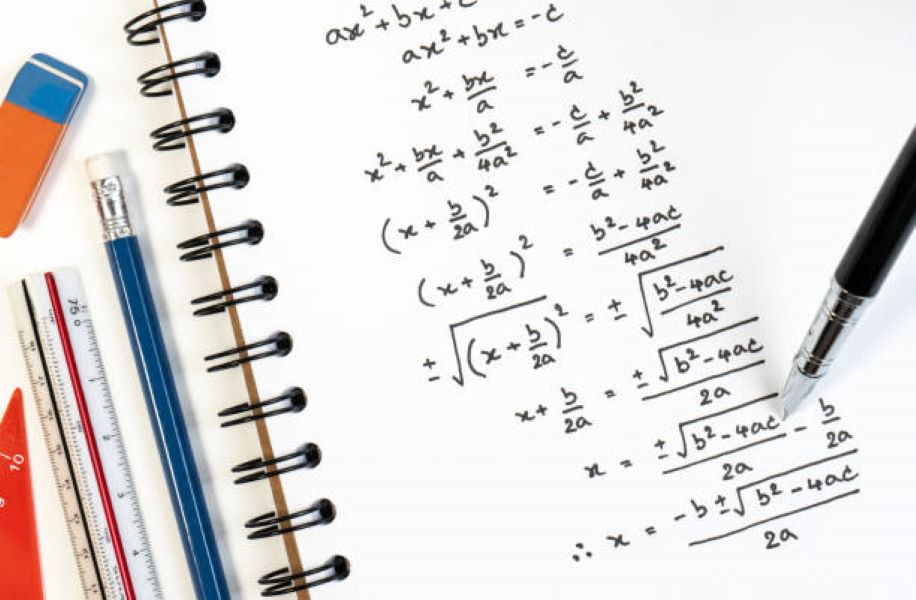 ax² + bx + c
ax² + bx = -c
x² + bx/a = -c/a
x² + bx/a + b²/4a² = -c/a + b²/4a²
(x + b/2a)² = -c/a + b²/4a²
(x + b/2a)² = b² - 4ac/4a²
± √(x + b/2a)² = ± √b² - 4ac/4a²
x + b/2a = ± √b² - 4ac/2a
x = ± √b² - 4ac/2a - b/2a
∴ x = -b ± √b² - 4ac/2a